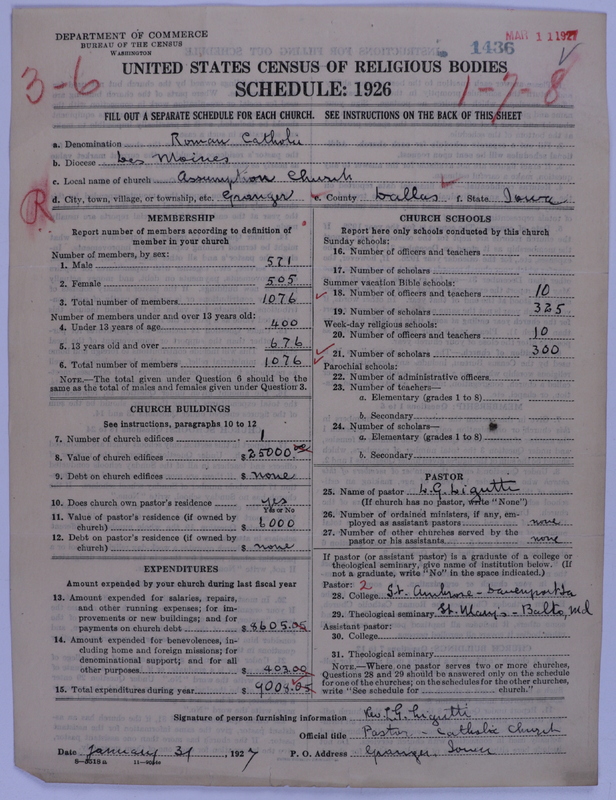 DEPARTMENT OF COMMERCE
BUREAU OF THE CENSUS
WASHINGTON
MAR 11 1927
1436
3-6
UNITED STATES CENSUS OF RELIGIOUS BODIES
SCHEDULE: 1926
1-7-8
FILL OUT A SEPARATE SCHEDULE FOR EACH CHURCH. SEE INSTRUCTIONS ON THE BACK OF THIS SHEET
a. Denomination Roman Catholic
b. Diocese Des Moines
c. Local name of church Assumption Church
d. City, town, village, or township, etc. Granger e. County Dallas f. State Iowa
R
MEMBERSHIP
Report number of members according to definition of
member in your church
Number of members, by sex:
1. Male 571
2. Female 505
3. Total number of members 1076
Number of members under and over 13 years old:
4. Under 13 years of age 400
5. 13 years old and over 676
6. Total number of members 1076
NOTE.—The total given under Question 6 should be the
same as the total of males and females given under Question 3.
CHURCH BUILDINGS
See instructions, paragraphs 10 to 12
7. Number of church edifices 1
8. Value of church edifices $25000.00
9. Debt on church edifices $ none
10. Does church own pastor's residence yes
Yes or No
11. Value of pastor's residence (if owned by
church) $6000
12. Debt on pastor's residence (if owned by
church) $ none
EXPENDITURES
Amount expended by your church during last fiscal year
13. Amount expended for salaries, repairs,
and other running expenses; for im-
provements or new buildings; and for
payments on church debt $8605.05
14. Amount expended for benevolences, in-
cluding home and foreign missions; for
denominational support; and for all
other purposes $403.00
15. Total expenditures during year $9008.05
CHURCH SCHOOLS
Report here only schools conducted by this church
Sunday schools:
16. Number of officers and teachers
17. Number of scholars
Summer vacation Bible schools:
18. Number of officers and teachers 10
19. Number of scholars 325
Week-day religious schools:
20. Number of officers and teachers 10
21. Number of scholars 300
Parochial schools:
22. Number of administrative officers
23. Number of teachers—
a. Elementary (grades 1 to 8)
b. Secondary
24. Number of scholars—
a. Elementary (grades 1 to 8)
b. Secondary
PASTOR
25. Name of pastor L.G. Ligutti
(If church has no pastor, write "None")
26. Number of ordained ministers, if any, em-
ployed as assistant pastors none
27. Number of other churches served by the
pastor or his assistants none
If pastor (or assistant pastor) is a graduate of a college or
theological seminary, give name of institution below. (If
not a graduate, write "No" in the space indicated.)
Pastor: 2
28. College St. Ambrose - Davenport Ia
29. Theological seminary St. Mary's - Balto, Md
Assistant pastor:
30. College
31. Theological seminary
NOTE.—Where one pastor serves two or more churches,
Questions 28 and 29 should be answered only on the schedule
for one of the churches; on the schedules for the other churches,
write "See schedule for church."
Signature of person furnishing information Rev. L.G. Ligutti
Official title Pastor - Catholic Church
Date January 31, 1927 P. O. Address Granger, Iowa
8-5518a